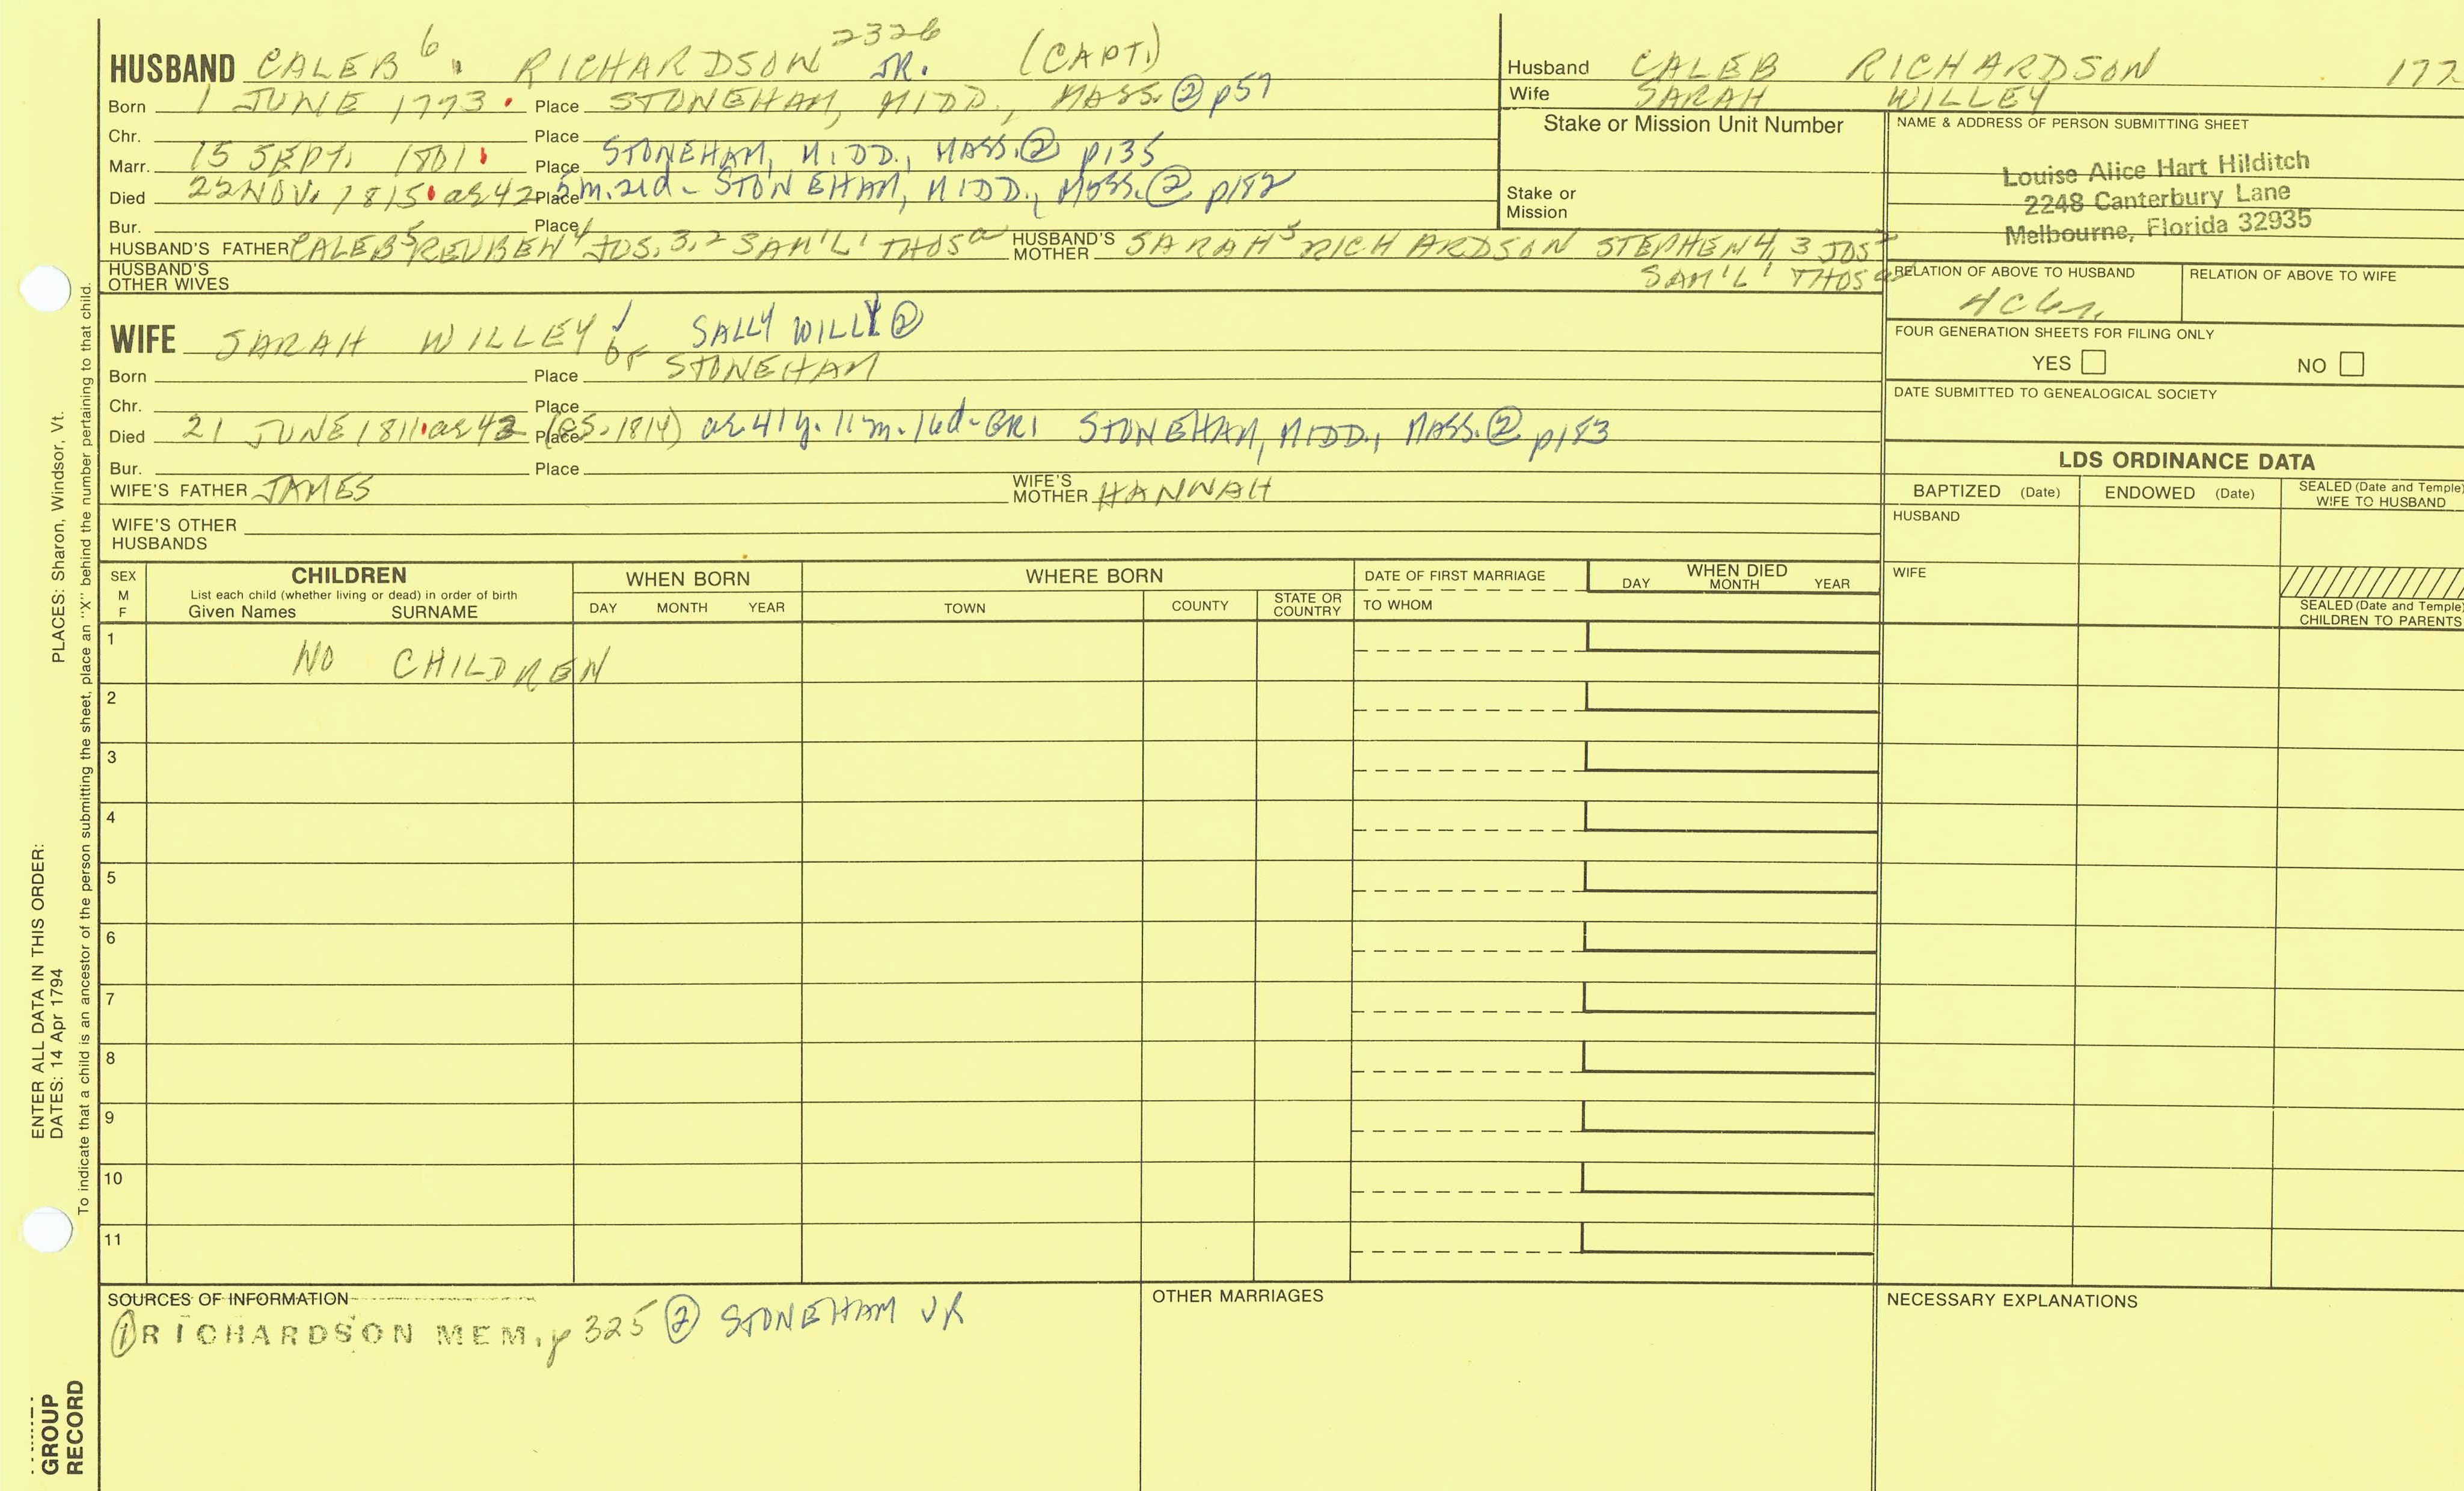 HUSBAND CALEB 6. RICHARDSON 2326 JR. (CAPT.)
Born 1 JUNE 1773. Place STONEHAM, MIDD., MASS. ② p57
Chr. Place
Marr. 15 SEPT. 1801. Place STONEHAM, MIDD., MASS. ② p135
Died 22 NOV. 1815. ae 42 Place 5m. 21d - STONEHAM, MIDD., MASS. ② p182
Bur. Place
HUSBAND'S FATHER CALEB 5 REUBEN 4 JOS. 3,2 SAM'L 1 THOS a HUSBAND'S MOTHER SARAH 5 RICHARDSON STEPHEN 4,3 JOS 2
SAM'L 1 THOS a
HUSBAND'S OTHER WIVES
WIFE SARAH WILLEY ✓ SALLY WILLY ②
OF STONEHAM
Born Place
Chr. Place
Died 21 JUNE 1811. ae 42 Place (GS. 1814) ae 41y. 11m. 16d - GR1 STONEHAM, MIDD., MASS. ② p183
Bur. Place
WIFE'S FATHER JAMES WIFE'S MOTHER HANNAH
WIFE'S OTHER HUSBANDS
Husband CALEB RICHARDSON 177
Wife SARAH WILLEY
Stake or Mission Unit Number
Stake or Mission
NAME & ADDRESS OF PERSON SUBMITTING SHEET
Louise Alice Hart Hilditch
2248 Canterbury Lane
Melbourne, Florida 32935
RELATION OF ABOVE TO HUSBAND RELATION OF ABOVE TO WIFE
FOUR GENERATION SHEETS FOR FILING ONLY
YES NO
DATE SUBMITTED TO GENEALOGICAL SOCIETY
LDS ORDINANCE DATA
BAPTIZED (Date) ENDOWED (Date) SEALED (Date and Temple) WIFE TO HUSBAND
HUSBAND
WIFE
SEALED (Date and Temple) CHILDREN TO PARENTS
SEX M F
CHILDREN
List each child (whether living or dead) in order of birth
Given Names SURNAME
WHEN BORN
DAY MONTH YEAR
WHERE BORN
TOWN COUNTY STATE OR COUNTRY
DATE OF FIRST MARRIAGE
TO WHOM
WHEN DIED
DAY MONTH YEAR
1 NO CHILDREN
2
3
4
5
6
7
8
9
10
11
SOURCES OF INFORMATION
① RICHARDSON MEM. p 325 ② STONEHAM VR
OTHER MARRIAGES
NECESSARY EXPLANATIONS
ENTER ALL DATA IN THIS ORDER:
DATES: 14 Apr 1794 PLACES: Sharon, Windsor, Vt.
To indicate that a child is an ancestor of the person submitting the sheet, place an "X" behind the number pertaining to that child.
GROUP
RECORD